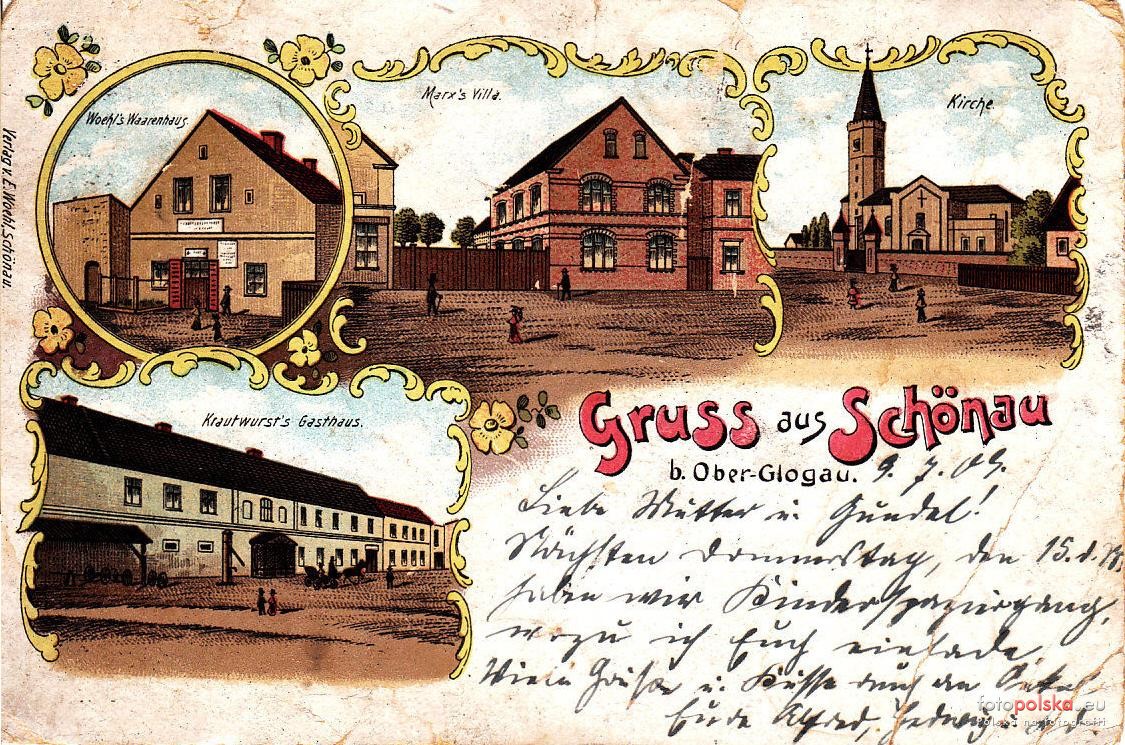 Verlag v. E. Woehl, Schönau.
Woehl's Waarenhaus.
Marx's Villa.
Kirche.
Krautwurst's Gasthaus.
Gruss aus Schönau
b. Ober-Glogau.
9. 7. 09.
Liebe Mutter u. Gundel!
Nächsten Donnerstag, den 15. d. M.
haben wir Kinderspaziergang,
wozu ich Euch einlade.
Viele Grüße u. Küsse auch an
Eure Alfred, Hedwig u.
fotopolska.eu
Polska na fotografii